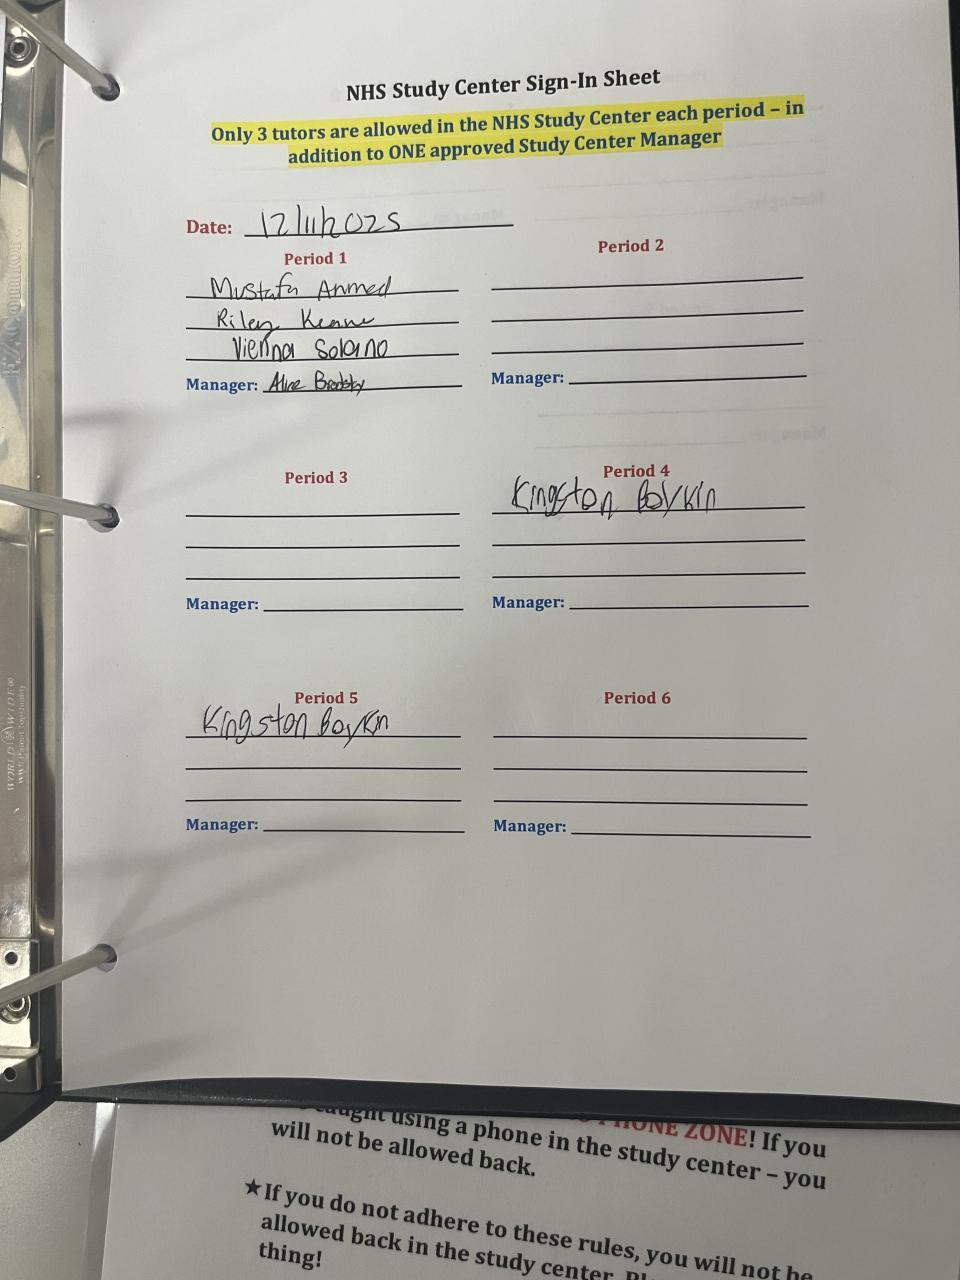 NHS Study Center Sign-In Sheet
Only 3 tutors are allowed in the NHS Study Center each period – in
addition to ONE approved Study Center Manager
Date: 12/11/2025
Period 1
Mustafa Ahmed
Riley Keane
Vienna Solano
Manager: Aline Brodsky
Period 2
Manager:
Period 3
Manager:
Period 4
Kingston Boykin
Manager:
Period 5
Kingston Boykin
Manager:
Period 6
Manager:
caught using a phone in the study center – you
PHONE ZONE! If you
will not be allowed back.
★If you do not adhere to these rules, you will not be
allowed back in the study center.
thing!
WORLD WIDE